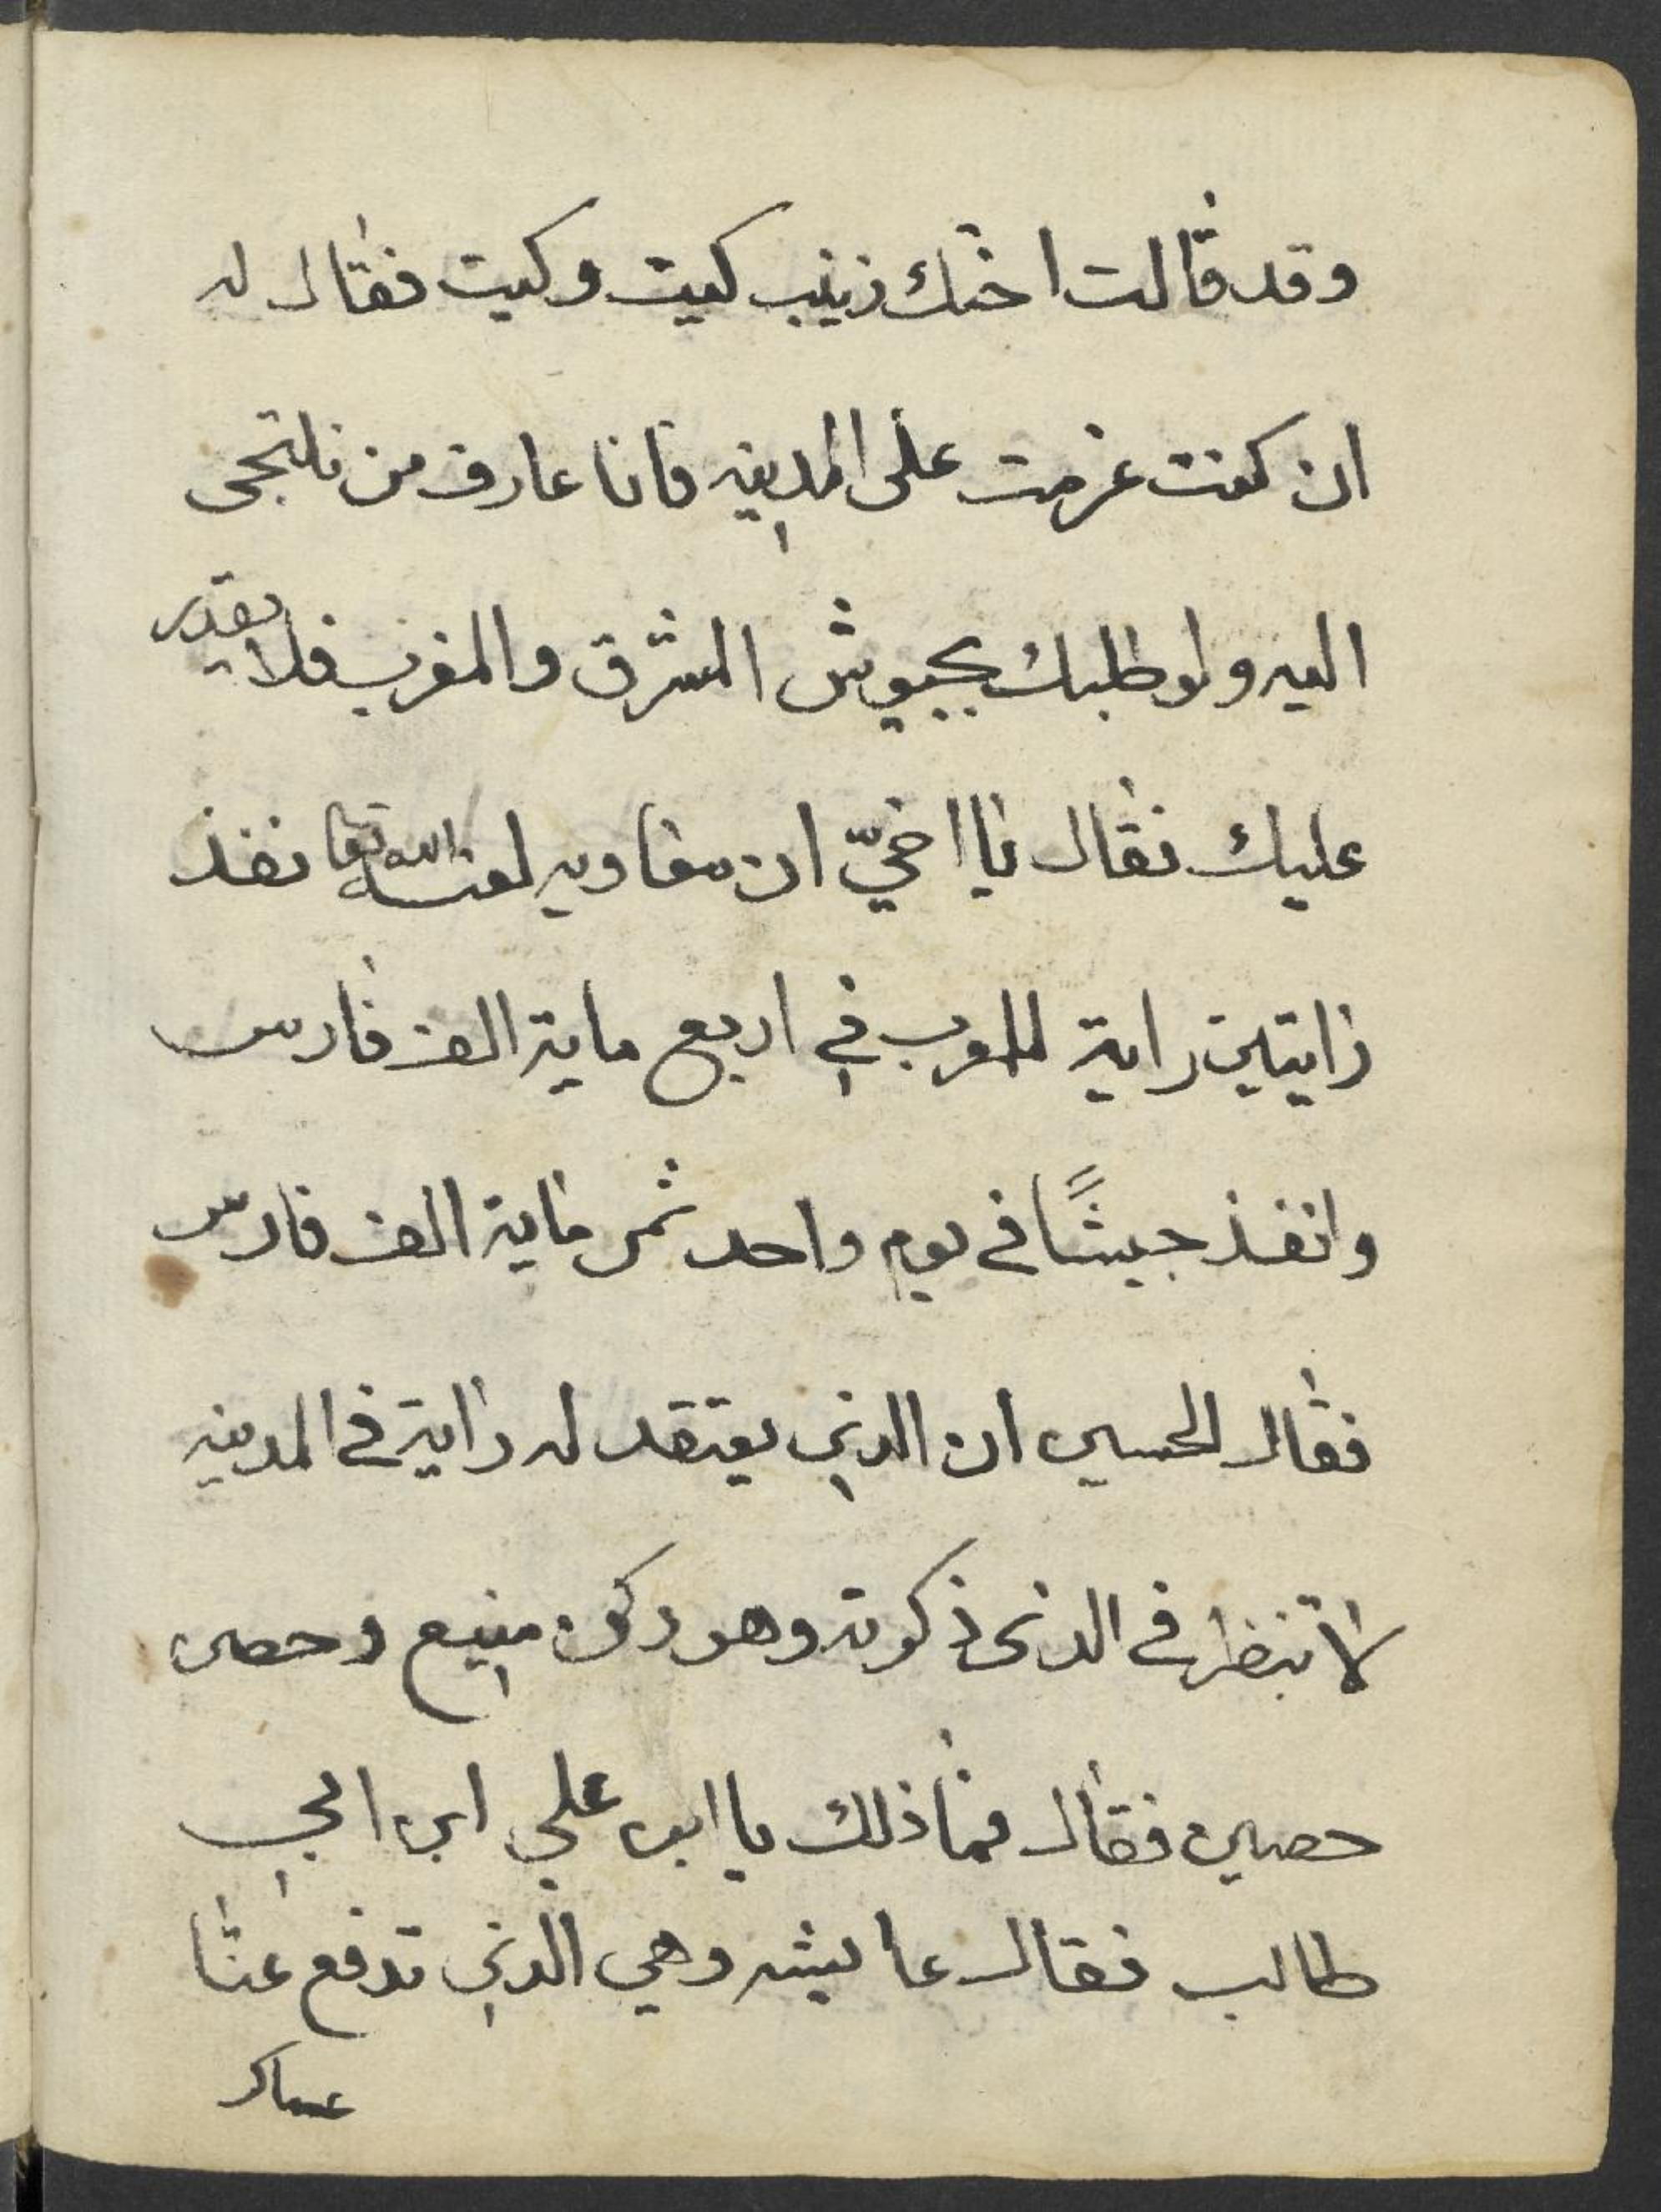 وقد قالت اختك زينب كيت وكيت فقال له
ان كنت عزمت على المدينه فانا عارف من نلتجى
اليه ولو طلبك بجيوش المشرق والمغرب فلا يقدر
عليك فقال يا اخيّ ان معاويه لعنه الله تعا نفذ
رايتين راية للعرب في اربع ماية الف فارس
وانفذ جيشًا في يوم واحد ثمن ماية الف فارس
فقال الحسين ان الذي يعتقد له راية في المدينه
لا تنظر في الذى ذكرته وهو ركن منيع وحصن
حصين فقال فما ذلك يا ابن علي ابن ابي
طالب فقال عايشه وهي الذي تدفع عنا
عساكر